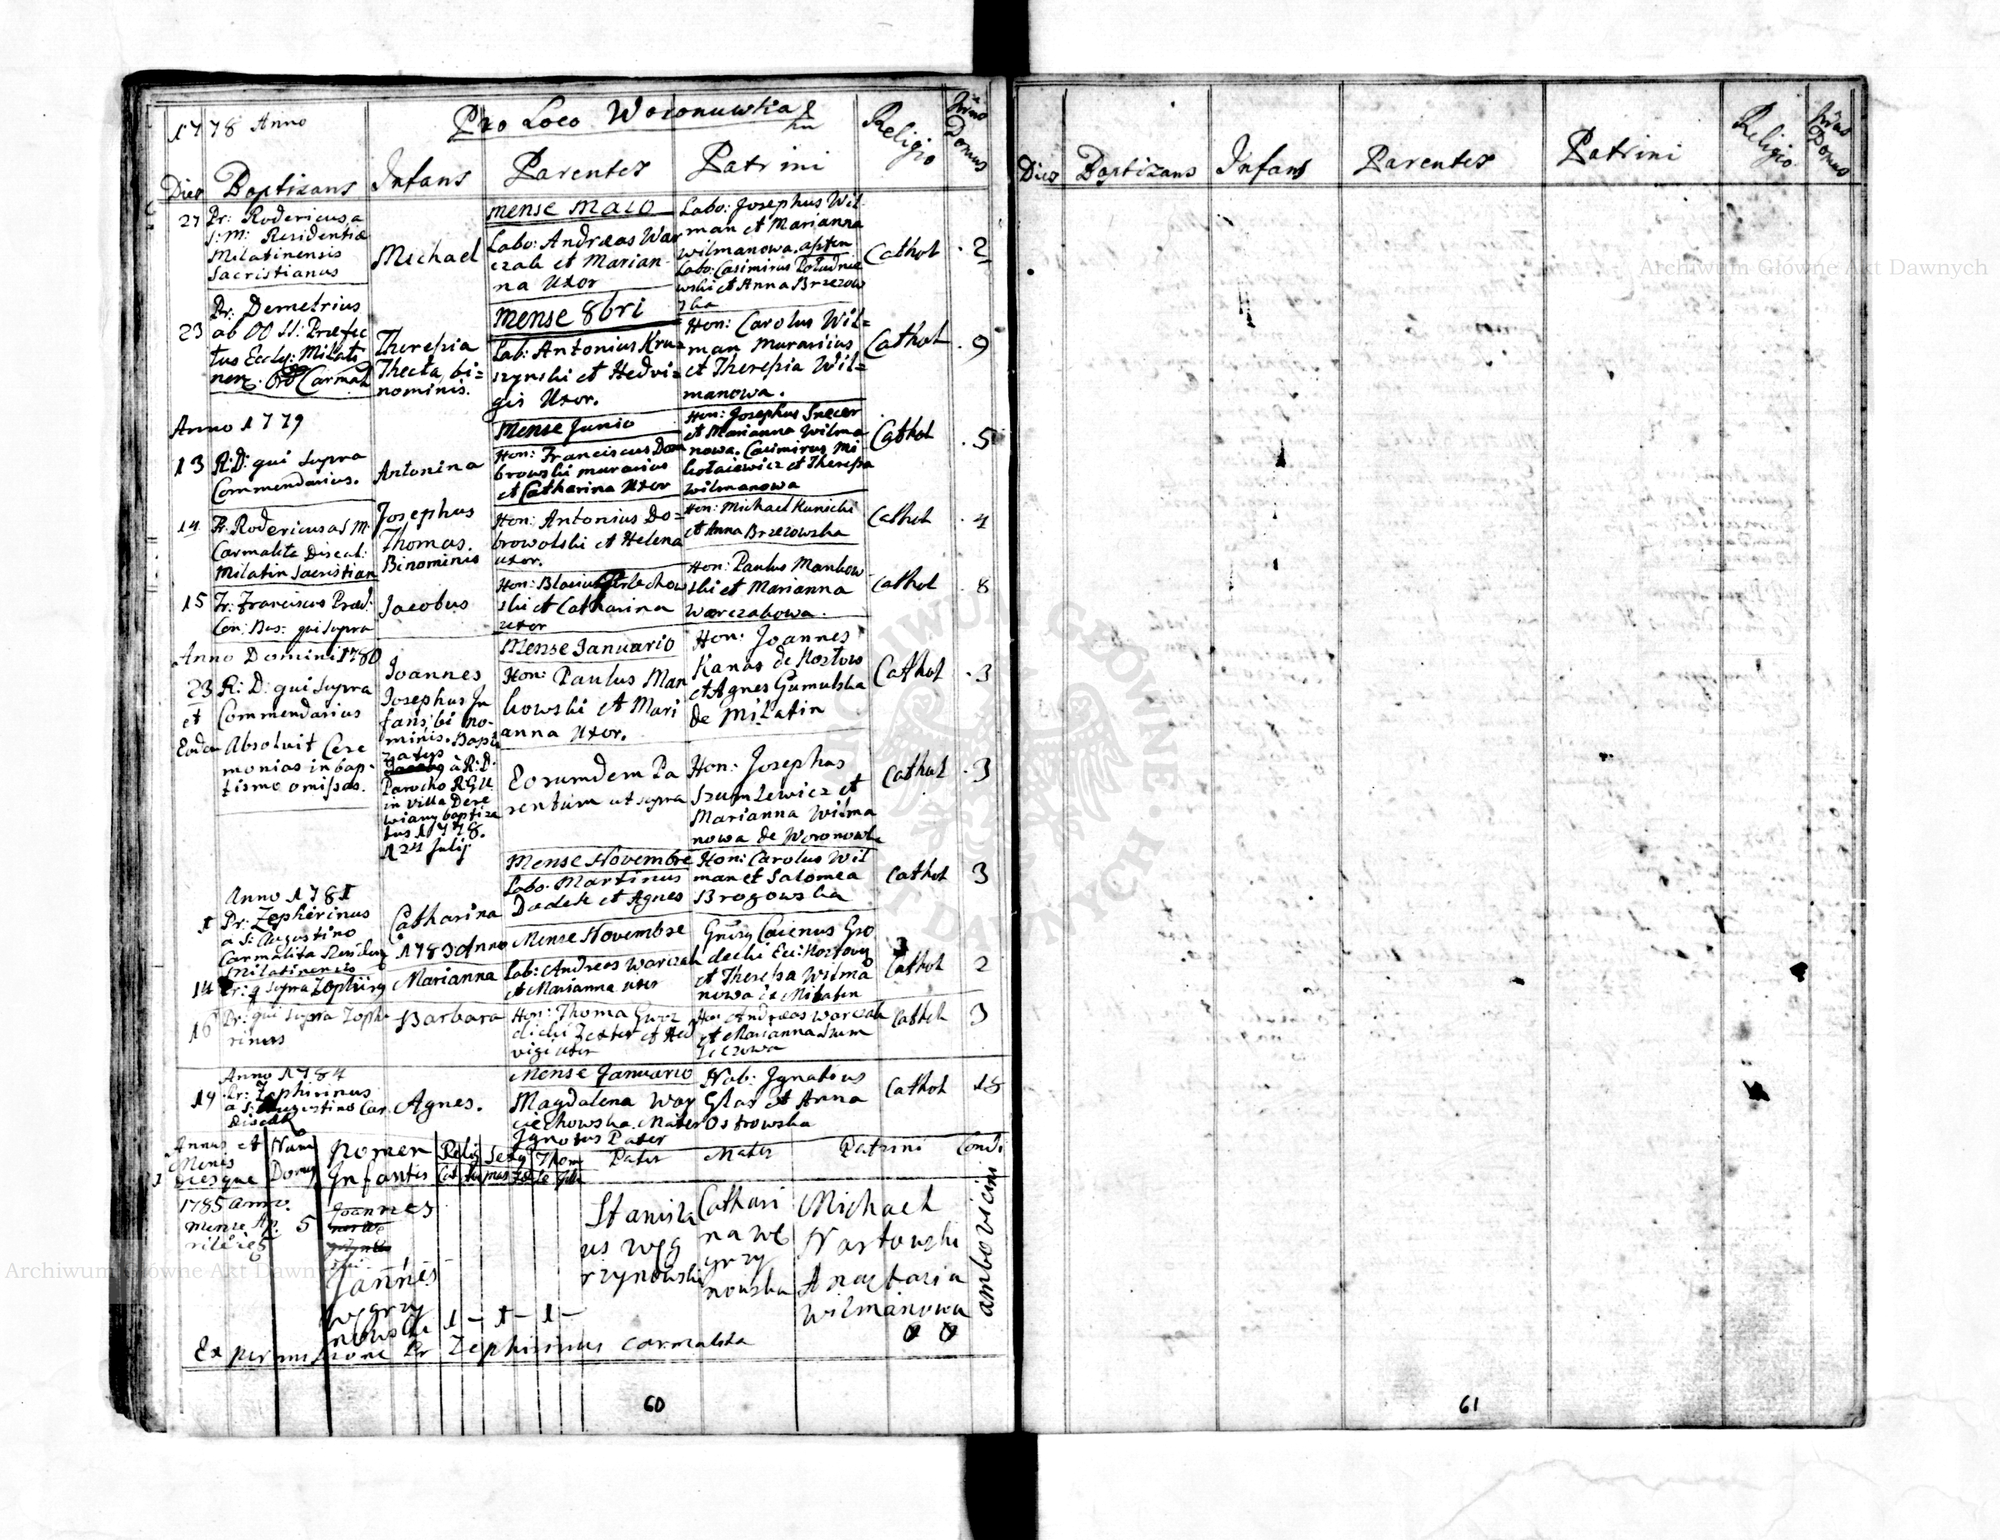 1778 Anno
Pro Loco Woronuwka
Dies Baptizans Infans Parentes Patrini Religio Nrus Domus
27 Pr: Rodericus a
S: M: Residentiæ
Milatinensis
Sacristianus
Michael
Mense Maio
Labo: Andreas War
czak et Marian
na Uxor
Labo: Josephus Wil
man et Marianna
Wilmanowa. asten
Labo: Casimirus Południe
wski et Anna Brzezow
ska
Cathol 2
23 Pr: Demetrius
ab OO SS: Præfec
tus Eccly: Milati
nen. Ord Carmel
Theresia
Thecta, bi=
nominis.
Mense 8bri
Lab: Antonius Kru=
szynski et Hedvi=
gis Uxor.
Hon: Carolus Wil=
man Murarius
et Theresia Wil=
manowa.
Cathol 9
Anno 1779
13 R: D: qui supra
Commendarius.
Antonina
Mense Junio
Hon: Franciscus Dom
browski murarius
et Catharina Uxor
Hon: Josephus
et Marianna Wilma
nowa. Casimirus Mi
kołaiewicz et Theresa
Wilmanowa
Cathol 5
14 Pr. Rodericus a S M:
Carmelita Discal:
Milatin Sacristian
Josephus
Thomas.
Binominis
Hon: Antonius Do=
browolski et Helena
uxor.
Hon: Michael Kunicki
et Anna Brzezowska
Cathol 4
15 Fr: Franciscus
qui supra
Jacobus
Hon: Blasius
ski et Catharina
uxor
Hon: Paulus Mankow
ski et Marianna
Warczakowa.
Cathol 8
Anno Domini 1780
23 R: D: qui supra
et Commendarius
Eodem Absoluit Cere
monias in bap-
tismo omissas.
Joannes
Josephus In
fans, bi no-
minis. Bapti
zatus
à R: D:
Parocho R: G: U
in villa Dere
wiany baptiza
tus 1778.
24 Julij
Mense Januario
Hon: Paulus Man
kowski et Mari
anna Uxor.
Hon: Joannes
Kanas de Kozłow
et Agnes Gumulska
de Milatin
Cathol 3
Eorumdem Pa
rentum ut supra
Hon: Josephus
Szumlewicz et
Marianna Wilma
nowa de Woronowka
Cathol 3
Anno 1781
1 Pr: Zepherinus
a S: Augustino
Carmelita
Milatinensis
Catharina
Mense Novembre
Labo: Martinus
Dudek et Agnes
Hon: Carolus Wil
man et Salomea
Brogowska
Cathol 3
1783 Anno
14 Pr: q supra
Marianna
Mense Novembre
Lab: Andreas Warczak
et Marianna uxor
Caienus Gro
decki
et Theresa Wilma
nowa de Milatin
Cathol 2
16 Pr: qui supra Zeph
rinus
Barbara
Hon: Thoma
Textor et Hed
vigi uxor
Hon: Andreas Warczak
et Marianna Szum
Cathol 3
Anno 1784
19 Pr: Zephirinus
a S: Augustino Car.
Discal
Agnes.
Mense Januario
Magdalena Woy
ciechowska. Mater
Ignotus Pater
Nob: Ignatius
Glas et Anna
Ostrowska
Cathol 18
Annus et
Mensis
Diesque
Num
Domus
Nomen
Infantis
Relig
Sexus
Thori
Pater Mater Patrini Condi
1785 anno.
mense Ap.
rili die 5
5
Joannes
Joannes
Węgrzy
nowski
1 - 1 - 1 -
Stanisła
us Węg
rzynowski
Cathari
na Wę
grzy
nowska
Michael
Nartowski
Anastazia
Wilmanowa
ambo vicini
Ex permissione Pr Zephirinus Carmelita
60
Dies Baptizans Infans Parentes Patrini Religio Nrus Domus
61
Archiwum Główne Akt Dawnych
Archiwum Główne Akt Dawnych
ARCHIWUM GŁÓWNE AKT DAWNYCH